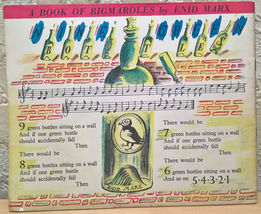 A BOOK OF RIGMAROLES by ENID MARX
NINE GREEN
BOTTLES
9 green bottles sitting on a wall
And if one green bottle
should accidentally fall
Then
There would be
8 green bottles sitting on a wall
And if one green bottle
should accidentally fall
Then
There would be
7 green bottles sitting on a wall
And if one green bottle
should accidentally fall
Then
There would be
6 green bottles sitting on a wall
And so on 5·4·3·2·1
ENID MARX